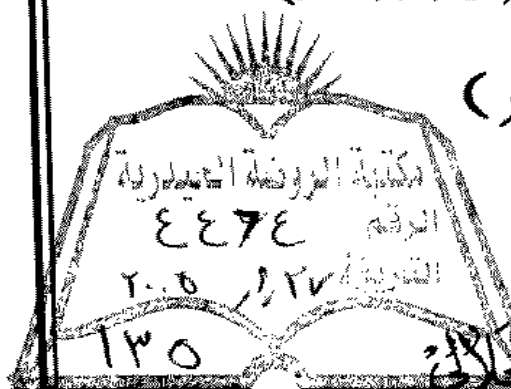 مكتبة الروضة الحيدرية
الرقم ٤٤٦٤
التاريخ ٢٧ ٢٠٠٥
١٣٥